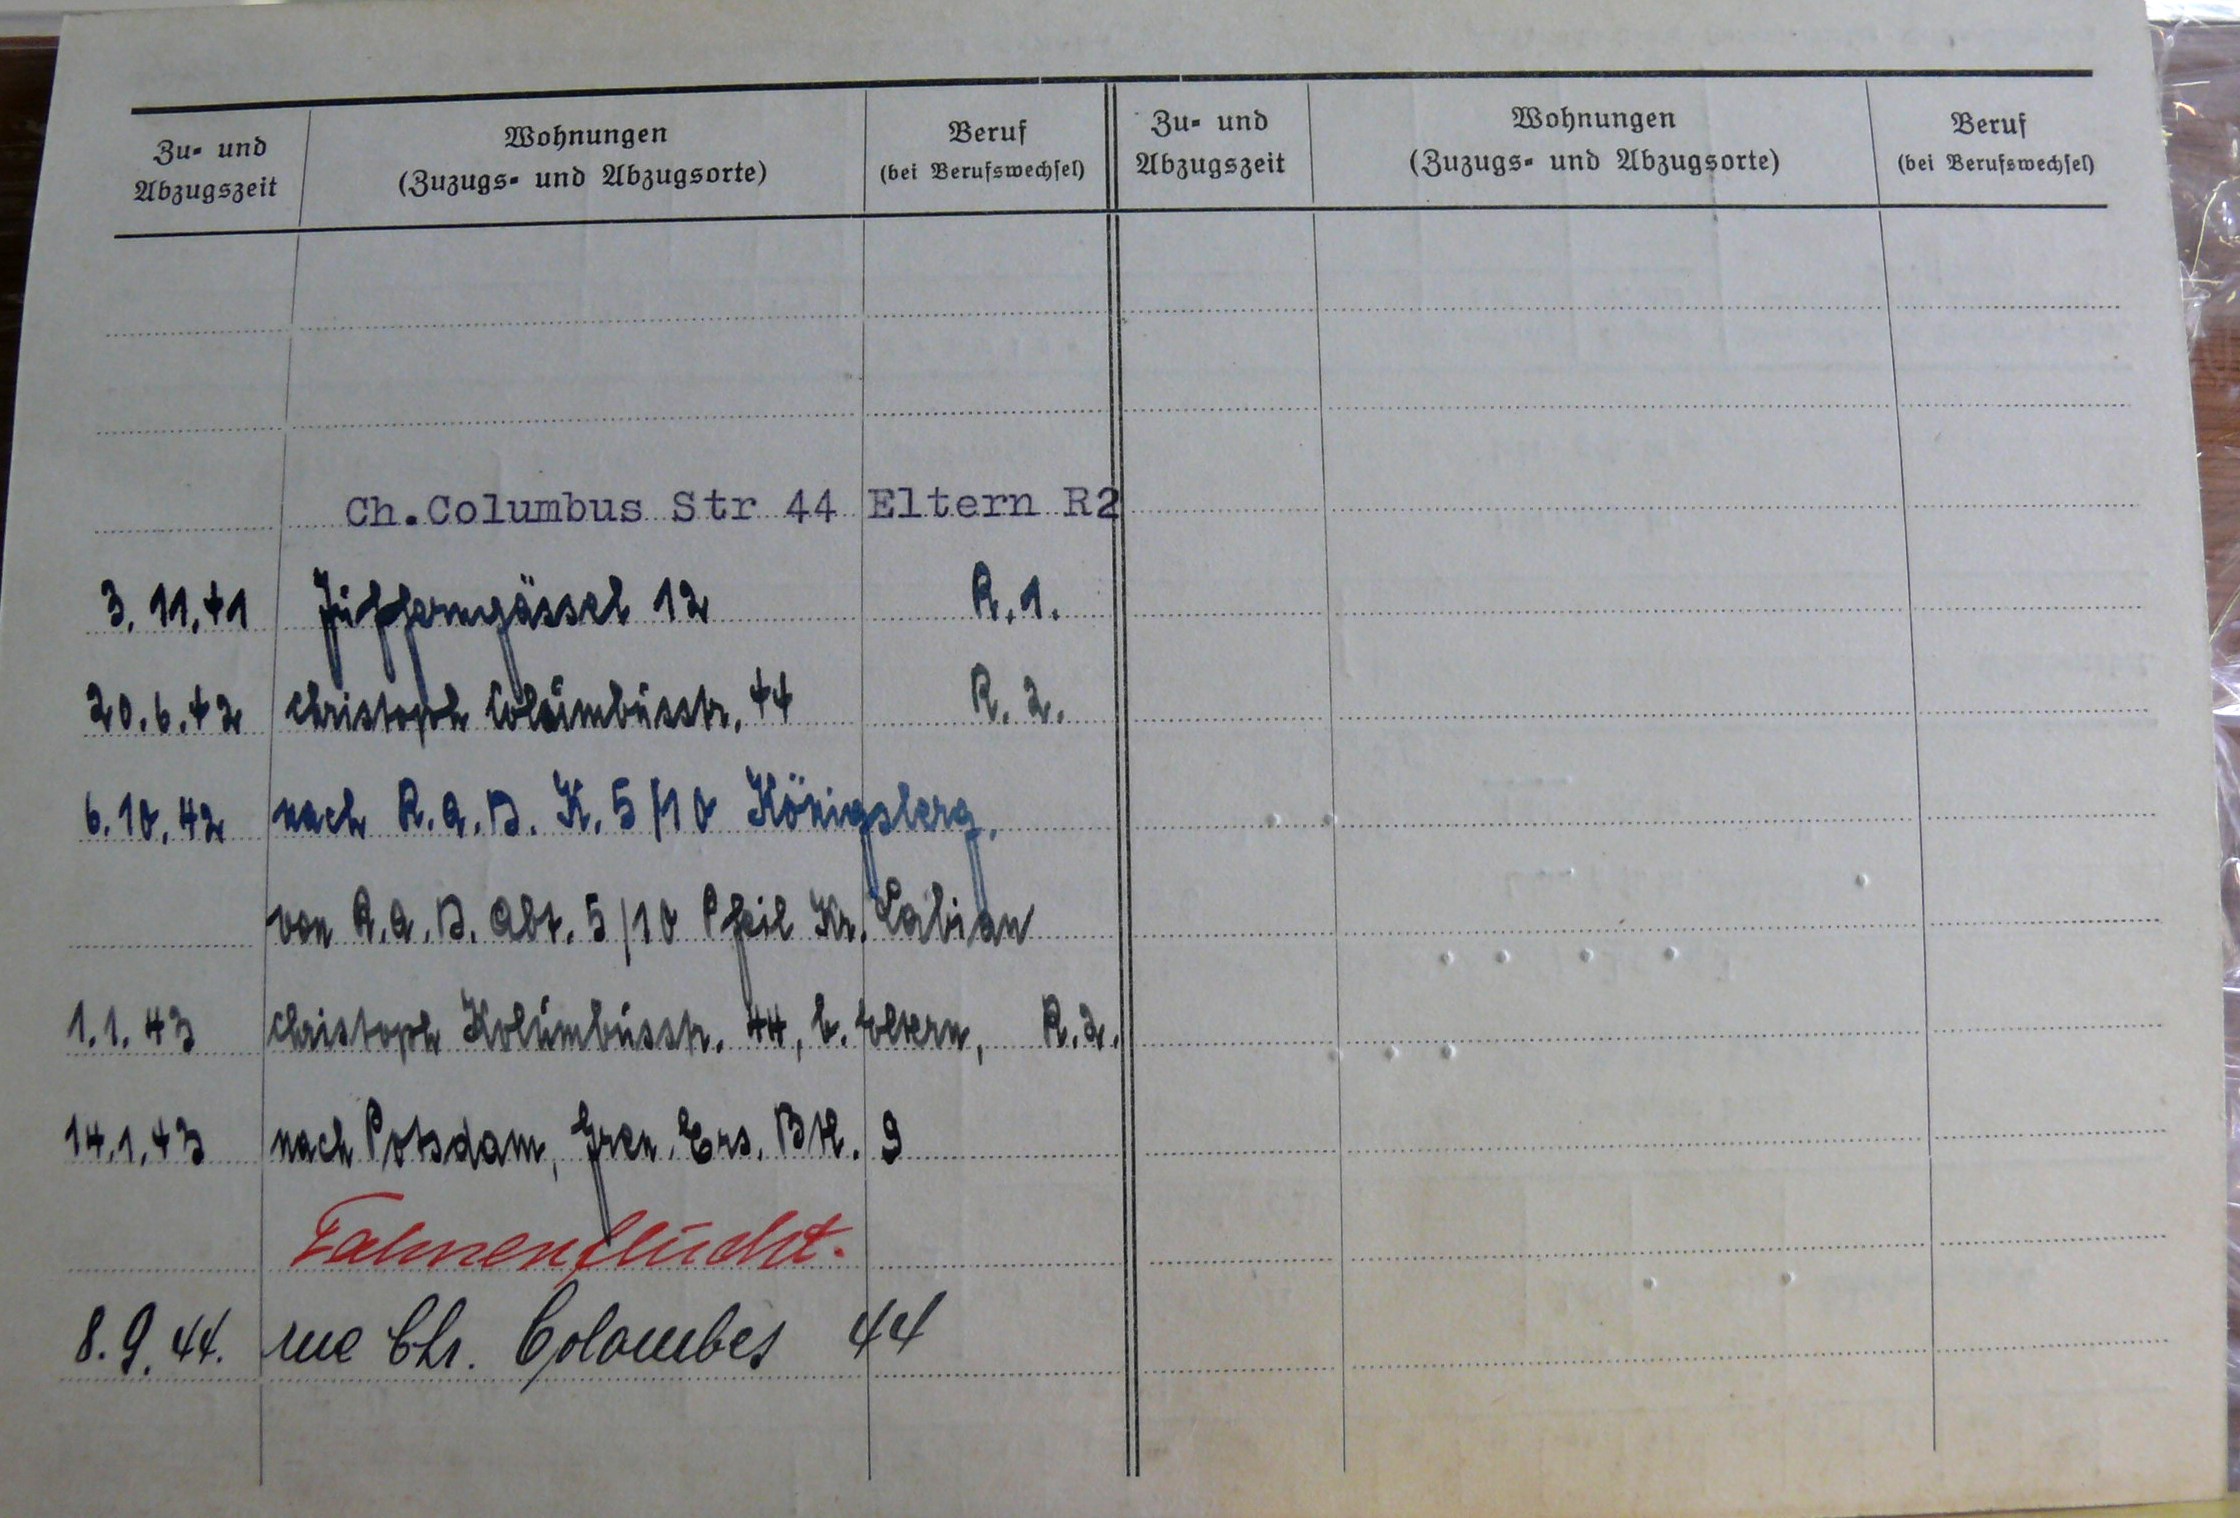 Zu- und Abzugszeit
Wohnungen
(Zuzugs- und Abzugsorte)
Beruf
(bei Berufswechsel)
Zu- und Abzugszeit
Wohnungen
(Zuzugs- und Abzugsorte)
Beruf
(bei Berufswechsel)
Ch.Columbus Str 44 Eltern R2
3.11.41 Jüpferngässel 12 R.1.
20.6.42 Christoph Columbusstr. 44 R.2.
6.10.42 nach R.A.D. K. 5/10 Königsberg.
von R.A.D. Abt. 5/10 Pfeil Kr. Labiau
1.1.43 Christoph Kolumbusstr. 44, b. Eltern, R.2.
14.1.43 nach Potsdam, Gren. Ers. Btl. 9
Fahnenflucht.
8.9.44. rue Chr. Colombes 44